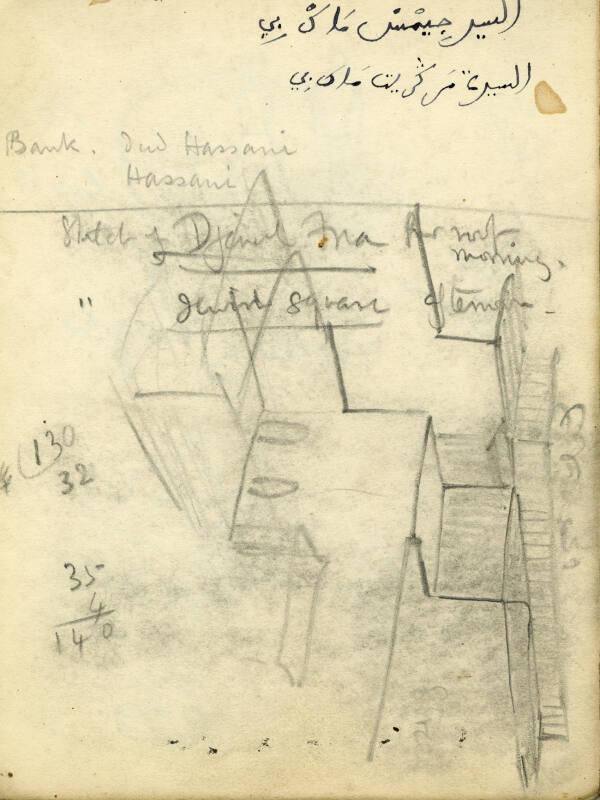 السيد جيمش مَاكْ بِي
السيدة مَركريت مَاك بي
Bank. Dud Hassani
Hassani
Sketch of Djemel Fna for next morning.
" Jewish Square afternoon
130
32
35
4
140